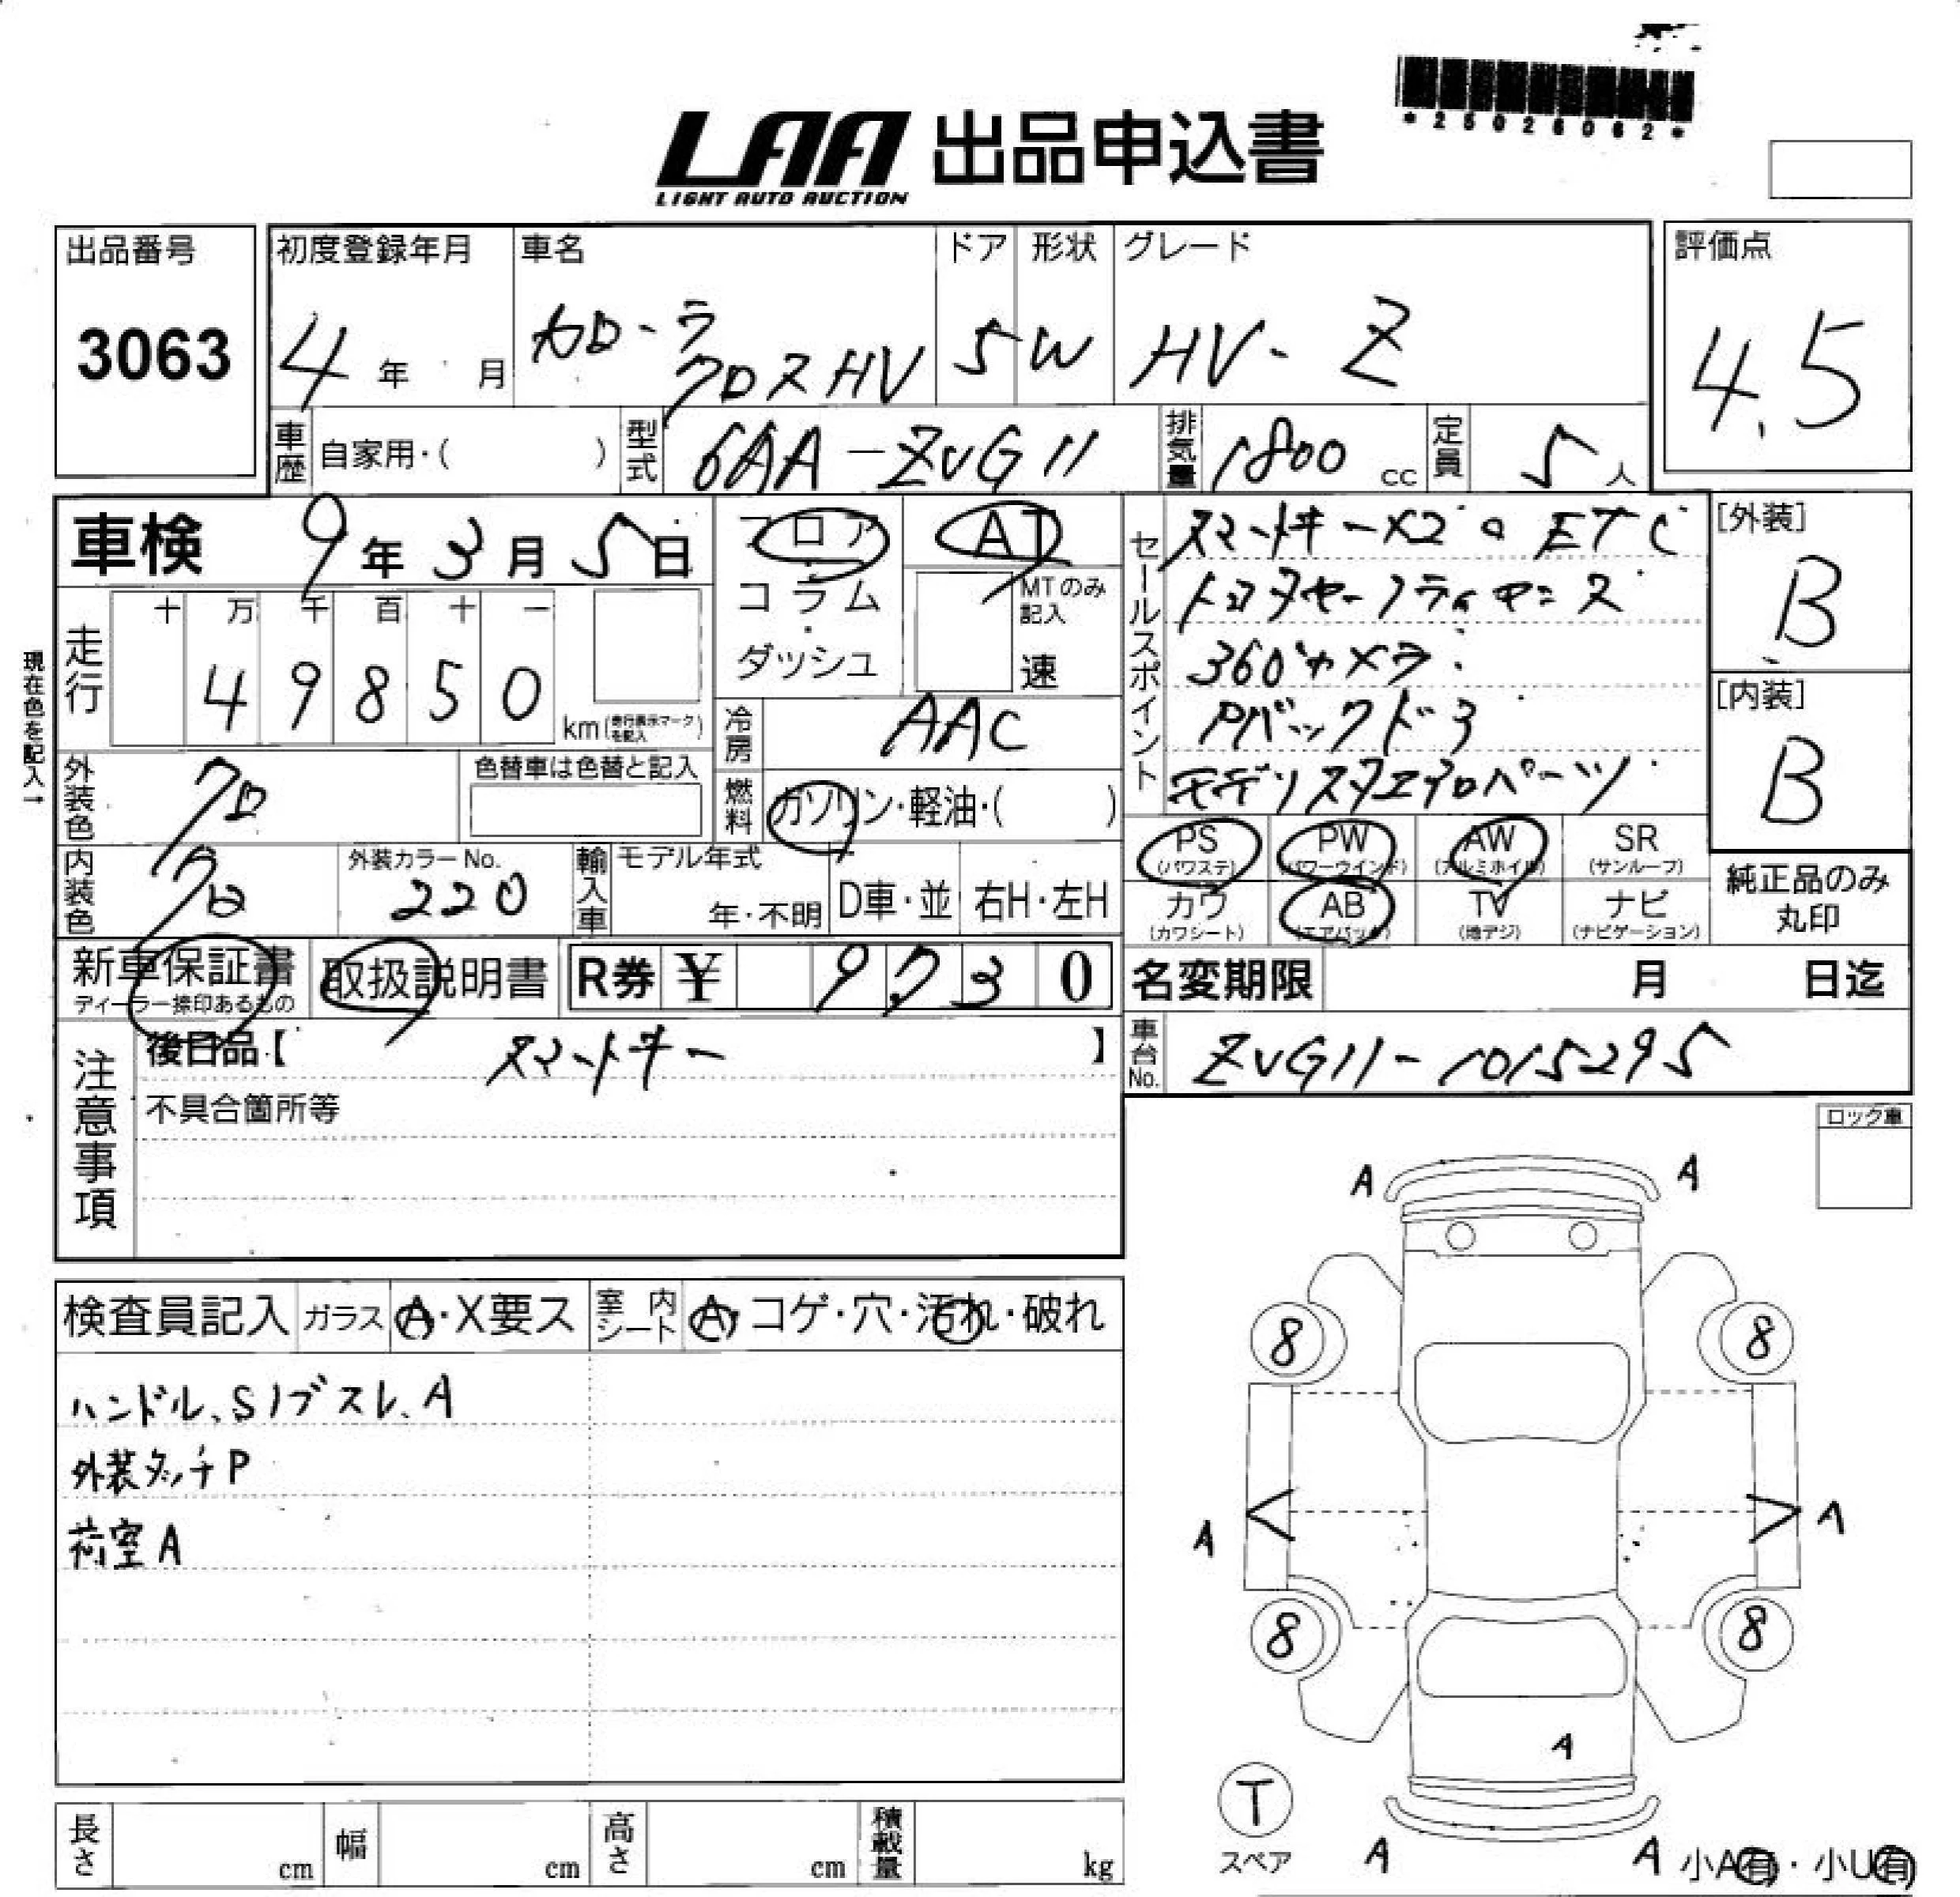 *25026062*
LAA 出品申込書
LIGHT AUTO AUCTION
出品番号
3063
初度登録年月
4年 月
車名
カローラ
クロスHV
ドア
5
形状
W
グレード
HV-Z
評価点
4.5
車歴
自家用・( )
型式
6AA-ZVG11
排気量
1800 cc
定員
5人
車検 9年3月5日
走行
十 万 千 百 十 一
4 9 8 5 0
km(走行表示マークを記入)
現在色を記入→
フロア
コラム
ダッシュ
AT
MTのみ
記入
速
冷房
AAC
燃料
ガソリン・軽油・( )
外装色
クロ
色替車は色替と記入
内装色
クロ
外装カラーNo.
220
輸入車
モデル年式
年・不明
D車・並
右H・左H
セールスポイント
スマートキー×2 ETC
トヨタセーフティセンス
360°カメラ
Pバックドア
モデリスタエアロパーツ
[外装]
B
[内装]
B
PS
(パワステ)
PW
(パワーウインド)
AW
(アルミホイル)
SR
(サンルーフ)
カワ
(カワシート)
AB
(エアバック)
TV
(地デジ)
ナビ
(ナビゲーション)
純正品のみ
丸印
新車保証書
ディーラー捺印あるもの
取扱説明書
R券 ¥ 9,730
名変期限 月 日迄
車台No.
ZVG11-1015295
注意事項
後日品【 スマートキー 】
不具合箇所等
ロック車
検査員記入
ガラス
A・X要ス
室内シート
A・コゲ・穴・汚れ・破れ
ハンドル、Sノブスレ、A
外装タッチP
荷室A
A A
8 8
A A
8 8
A
T
スペア
A A
小A有・小U有
長さ cm
幅 cm
高さ cm
積載量 kg